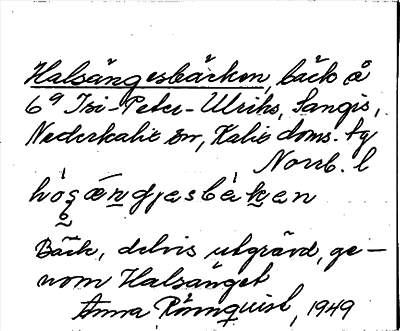 Halsängesbäcken, bäck å
6⁹ Isi-Peter-Ulriks, Sangis,
Nederkalix sn, Kalix doms. tg
Norrb. l
Bäck, delvis utgrävd, ge-
nom Halsänget
Anna Rönnquist, 1949